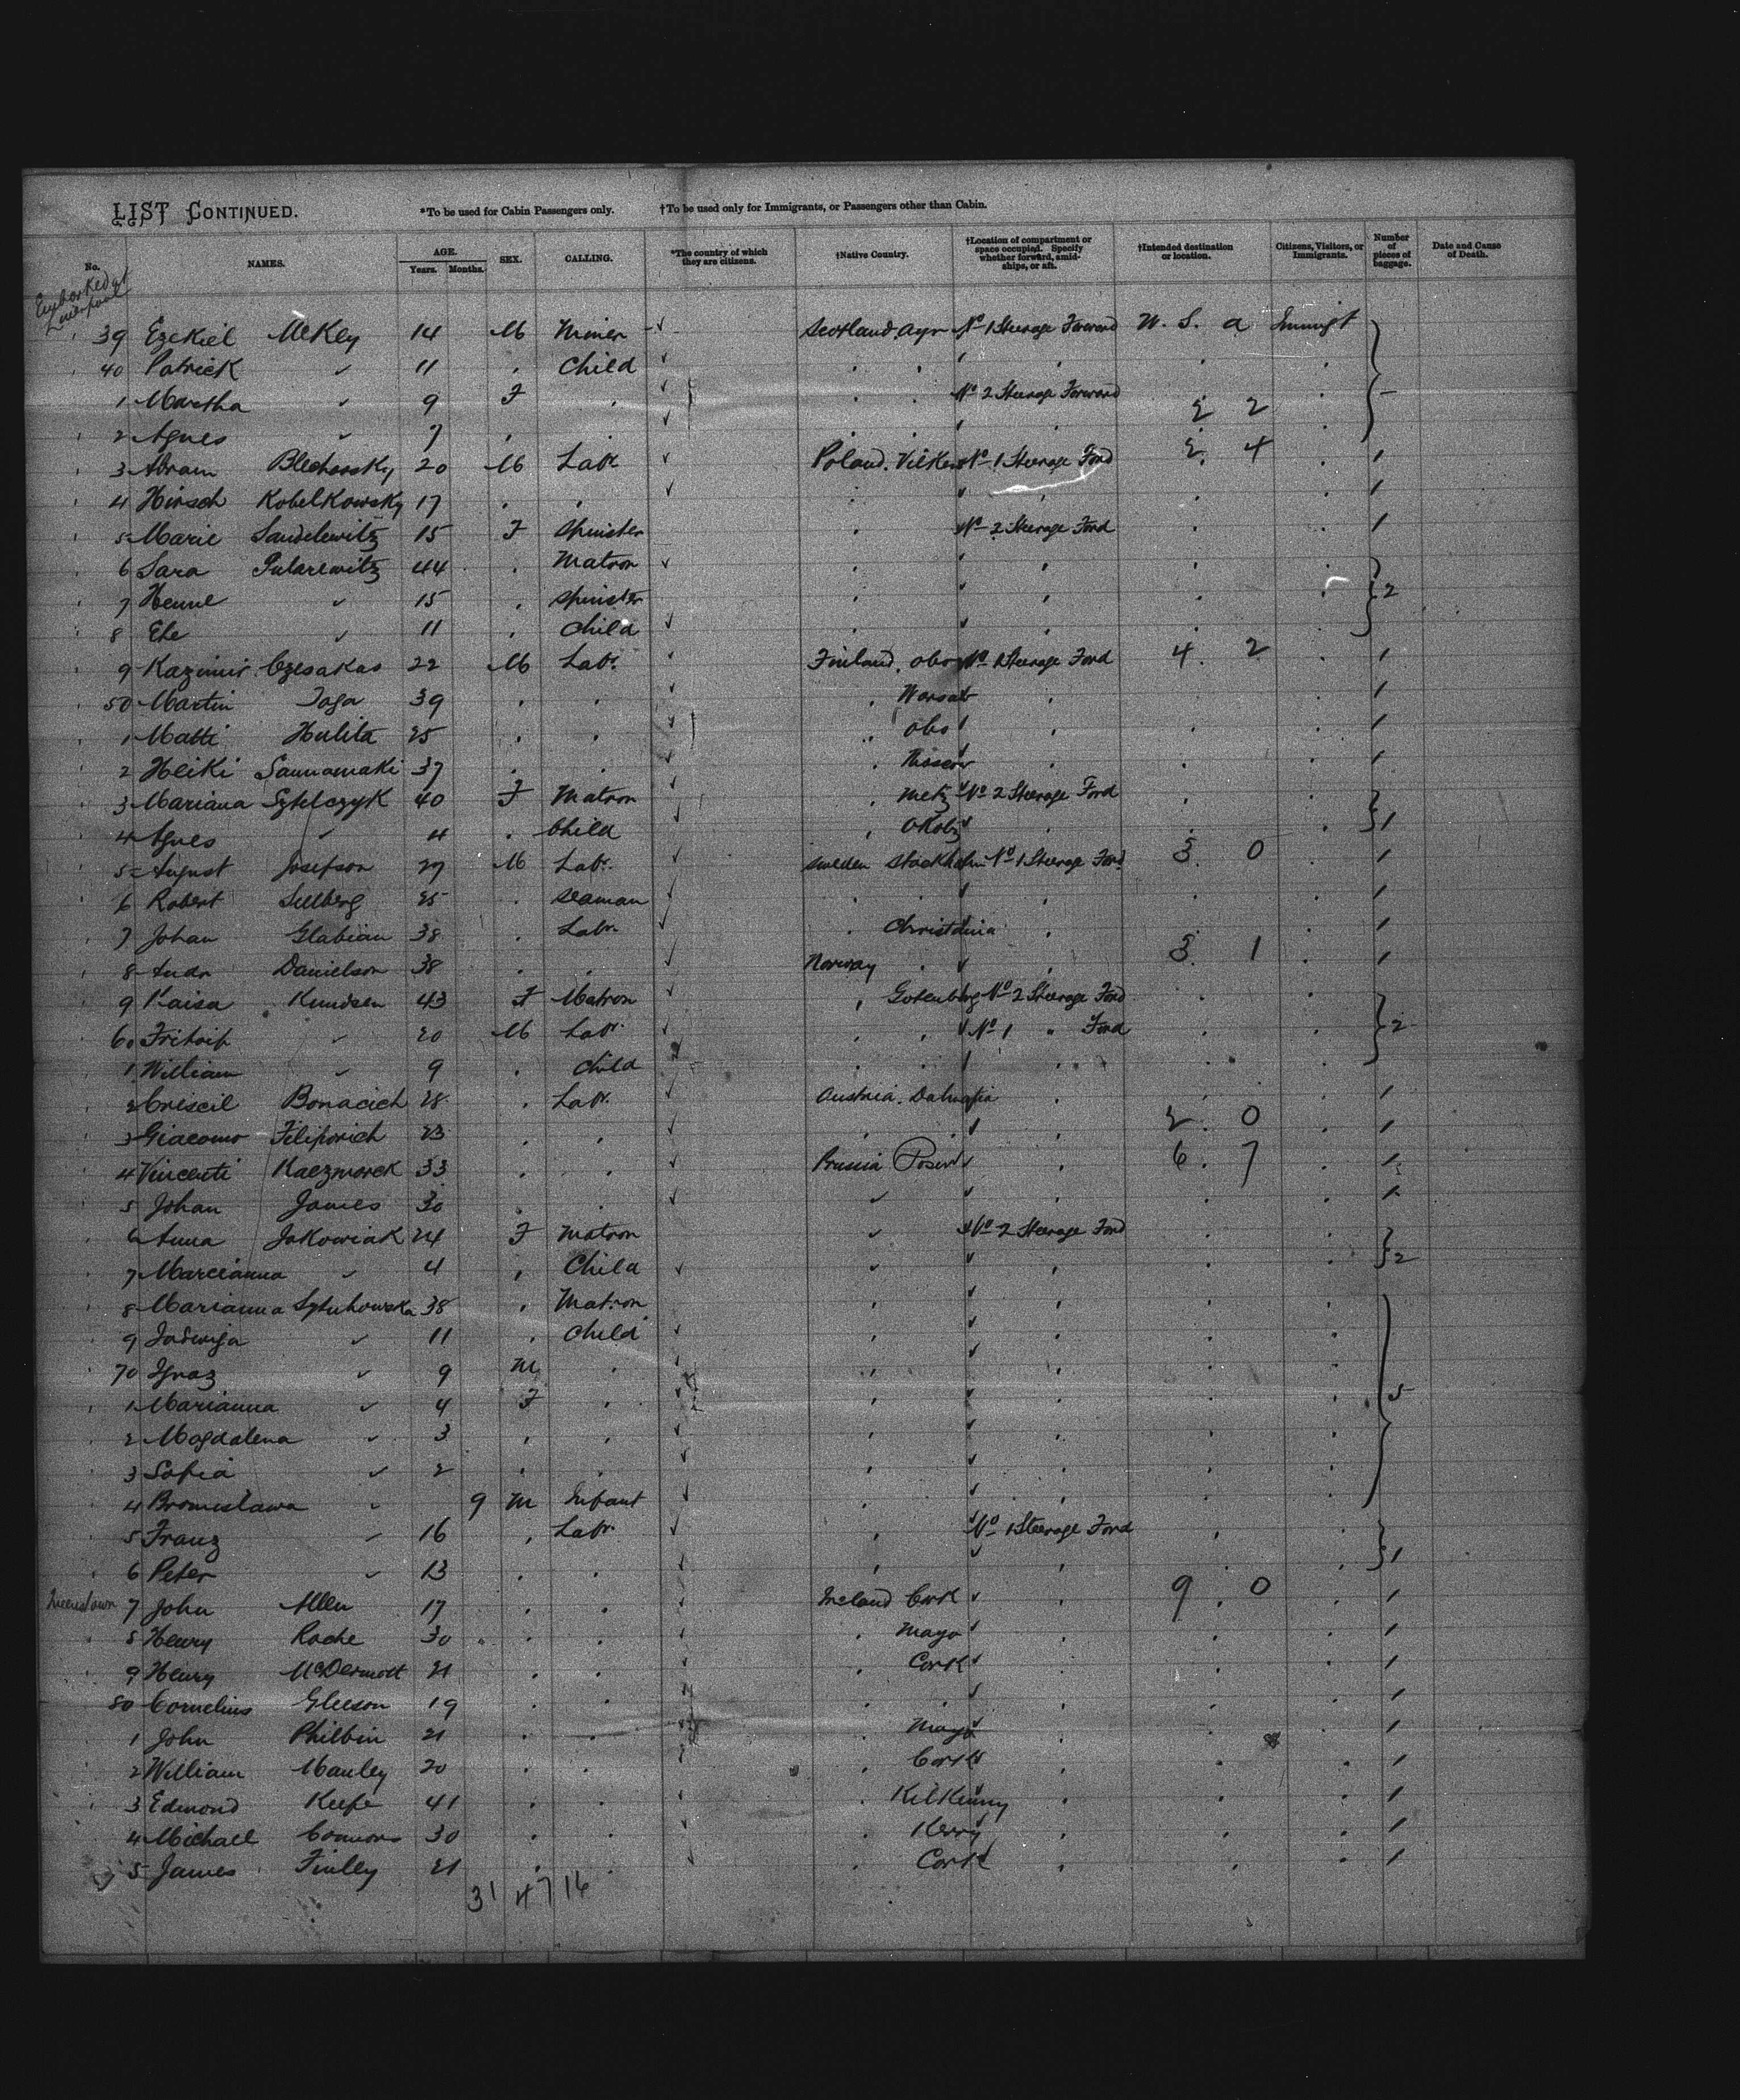 LIST CONTINUED. *To be used for Cabin Passengers only. †To be used only for Immigrants, or Passengers other than Cabin.
No. NAMES. AGE. Years. Months. SEX. CALLING. *The country of which they are citizens. †Native Country. †Location of compartment or space occupied. Specify whether forward, amidships, or aft. †Intended destination or location. Citizens, Visitors, or Immigrants. Number of pieces of baggage. Date and Cause of Death.
Embarked at Liverpool
39 Ezekiel McKley 14 M Miner Scotland, Ayr No 1 Steerage Forward U. S. a Immigt
40 Patrick 11 Child
1 Martha 9 F No 2 Steerage Forward
2 Agnes 7 2 2
3 Abram 20 M Lab Poland. No 1 Steerage Ford 2 4 1
4 Hirsch Kobelkowsky 17 1
5 Marie Sandelewitz 15 F Spinster No 2 Steerage Ford 1
6 Sara 44 Matron
7 15 Spinster 2
8 Ehe 11 Child
9 Kazimir Czesakas 22 M Labr. Finland. Obo No 1 Steerage Ford 4 2 1
50 Martin 39 Warsaw 1
1 Matti Hulita 25 Obo 1
2 Heiki Saunamaki 37 1
3 Mariana 40 F Matron Metz No 2 Steerage Ford
4 Agnes 4 Child 1
5 August Josefson 27 M Labr. Sweden Stockholm No 1 Steerage Ford 3 0 1
6 Robert Sellberg 25 Seaman 1
7 Johan Glabian 38 Labr. Christania 1
8 Danielson 38 Norway 3 1 1
9 Kaisa Knudsen 43 F Matron Gotenberg No 2 Steerage Ford
60 20 M Labr. No 1 " Ford 2
1 William 9 Child
2 Bonacich 28 Labr. Austria. Dalmatia 1
3 Giacomo Filipovich 23 2 0 1
4 Vincenti Kaczmorek 33 Prussia Posen 6 7 1
5 Johan James 30 1
6 Anna Jakowiak 24 F Matron No 2 Steerage Ford
7 Marcianna 4 Child 2
8 Marianna 38 Matron
9 Jadwiga 11 Child
70 Ignaz 9 M
1 Marianna 4 F 5
2 Magdalena 3
3 Sofia 2
4 Bromislawa 9 M Infant
5 Franz 16 Labr. No 1 Steerage Ford
6 Peter 13 1
Queenstown 7 John Allen 17 Ireland Cork 9 0 1
8 Henry Roche 30 Mayo 1
9 Henry McDermott 21 Cork 1
80 Cornelius Gleeson 19 1
1 John Philbin 21 Mayo 1
2 William Manley 20 Cork 1
3 Edmond Keefe 41 Kilkenny 1
4 Michael Connors 30 Kerry 1
5 James Finley 21 Cork 1
31 47 16